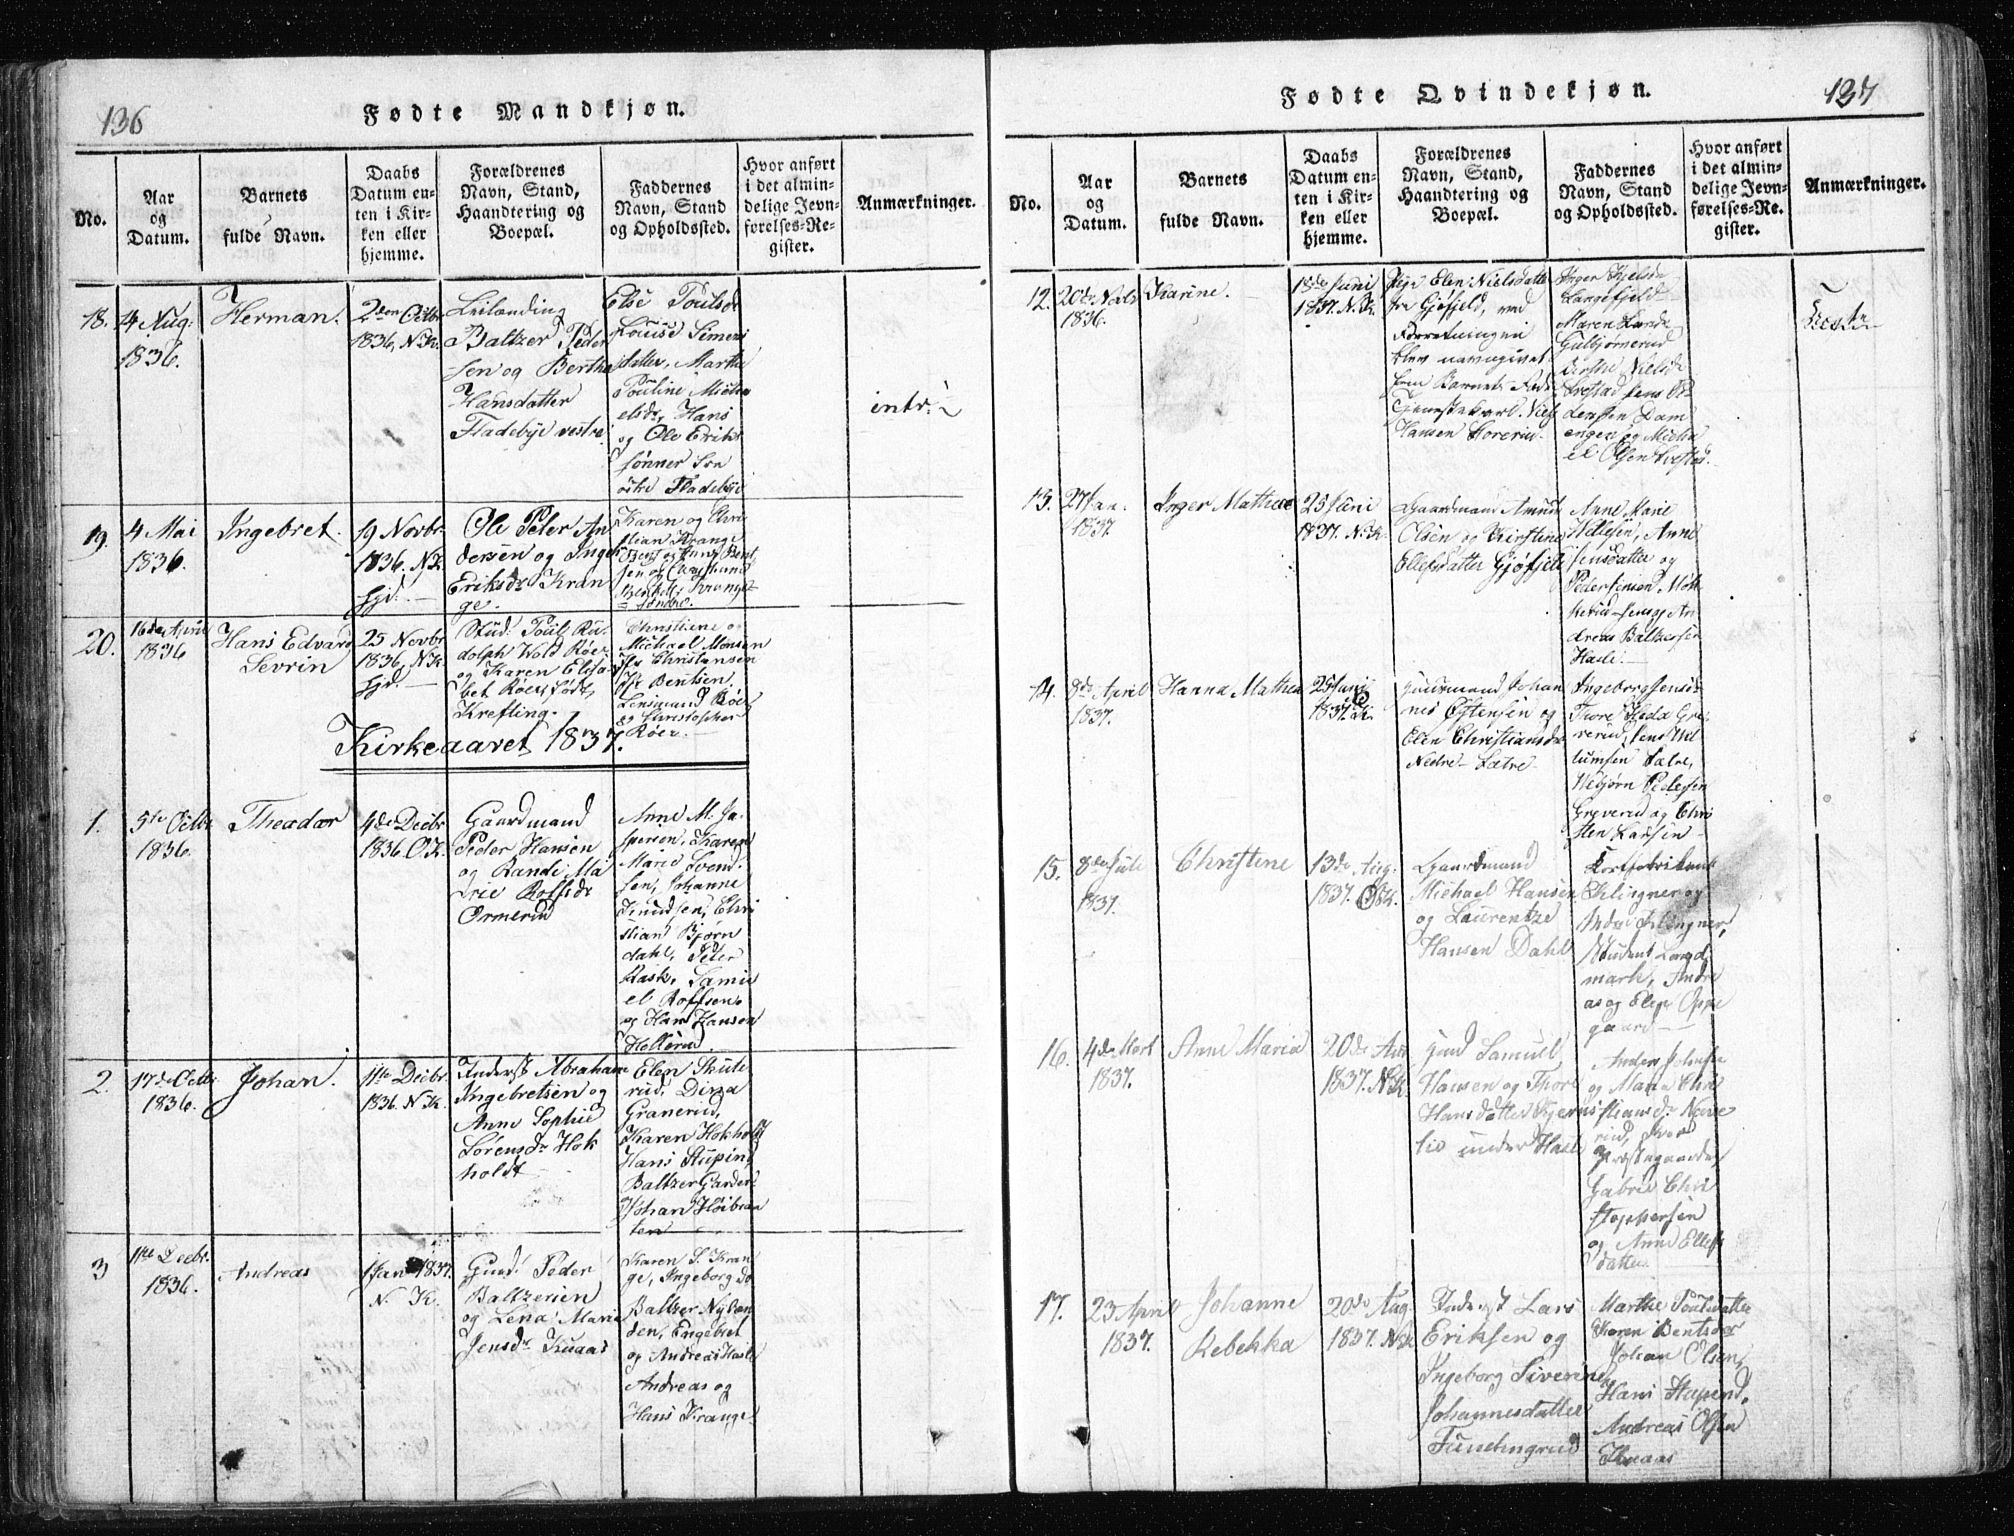 136
Fødte Mandkjøn.
No.
Aar og Datum.
Barnets fulde Navn.
Daabs Datum enten i Kirken eller hjemme.
Forældrenes Navn, Stand, Haandtering og Boepæl.
Faddernes Navn, Stand og Opholdssted.
Hvor anført i det almindelige Jevnførelses-Register.
Anmærkninger.
18.
4 Aug:
1836.
Herman.
2den Octbr
1836, N.K.
Leilænding
Baltzer Peder
sen og Bertha
Hansdatter
Fladebye vestre
Else Poulsdr
Louise Simens
datter, Marthe
Pouline Micha
elsdr, Hans
og Ole Eriks
sønner
østre Fladebye
intr:
19.
4 Mai
1836.
Ingebret.
19 Novbr
1836. N.K.
hjd.
Ole Peter An
dersen og Inger
Eriksdr Kran
ge.
Karen og Chri
stian Krange
20.
16de April
1836
Hans Edvard
Sevrin
25 Novbr
1836, N.K.
hjd.
Stud: Poul Ru
dolph Wold Røer
og Karen Elisa
bet Røer, født
Krefting.
Christiene og
Michael Monsen
Christensen
Bentsen
Lensmand Røer
og Christopher
Røer.
Kirkeaaret 1837.
1.
5te Octbr
1836.
Theador
4de Decbr
1836. O.K.
Gaardmand
Peder Hansen
og Randi Ma
rie Rolfsdr
Ormerud
Anne M. Ja
persen, Karen
Marie Svend
sen, Johanne
Knudsen, Chri
stian Bjørn
dahl, Peter
Rask, Samu
el Roffsen
og Hans Hansen
Hellerud
2.
17de Octbr
1836.
Johan.
11te Decbr
1836. N.K.
Inderst Abraham
Ingebretsen og
Anne Sophie
Sørensdr Hok
holdt
Elen Skute
rud, Dirza
Granerud,
Karen Hokholt
Hans Stupin
Baltzer Garder
Johan Høibraa
ten
3
11te Decbr.
1836.
Andreas
1 Jan 1837.
N. K.
Gmd: Peder
Baltzersen
og Lena Marie
Jensdr Knaas
Karen S. Kran
ge, Ingeborg do
Baltzer Nylæn
den, Engebret
og Andreas Hasle
Andreas og
Hans Krange
137
Fødte Qvindekjøn.
No.
Aar og Datum.
Barnets fulde Navn.
Daabs Datum enten i Kirken eller hjemme.
Forældrenes Navn, Stand, Haandtering og Boepæl.
Faddernes Navn, Stand og Opholdssted.
Hvor anført i det almindelige Jevnførelses-Register.
Anmærkninger.
12.
1836.
Karine.
18de Juni
1837. N.K.
Pige Elen Nielsdatter
fra Gjøfjeld, ved
Forretningen
blev navngivet
som Barnets Fader
Tjenestekarl Niels
Hansen
Inger
Langfjeld
Maren
Gulbjørnerud
13.
27 Jan.
1837
Inger Mathea
25 Juni
1837. N.K.
Gaardmand Amund
Olsen og Kirstine
Ellefsdatter Gjøfjeld
Anne Marie
Hellesen, Anne
Jensdatter og
Peder Jensen
dreas Baltzersen
Hasle.
14.
8de April
1837.
Hanna Mathea
25 Juni
1837. N.K.
Gaardmand Johan
nes Østensen og
Elen Christiansdr
Nedre Sætre
Ingeborg Jensdr
Sætre,
Webjørn Pedersen
Greverud og Chri
sten Larsen
15.
8de Juli
1837.
Christine
13de Aug:
1837. O.K.
Gaardmand
Michael Hansen
og Laurentze
Hansen Dahl
Klingner og
Student Langd
mark, Andre
as og Elen Oppe
gaard
16.
4de Mart
1837.
Anne Maria
20de Aug
1837. N.K.
Gmd Samuel
Hansen og Thore
Hansdatter Kjerns
lie under Hasle
Anders Johnsen
og Maria Chri
stiansdr
rud,
Præstegaarden
Gabriel Chri
stophersen
og Anne Ellefs
datter
17.
23 April
1837.
Johanne
Rebekka
20de Aug.
1837. N.K.
Inderst Lars
Eriksen og
Ingeborg Siverine
Johannesdatter
Tunelingrud
Marthe Poulsdatter
Karen Bentsdr
Johan Olsen,
Hans Stupend,
Andreas Olsen
Knaas